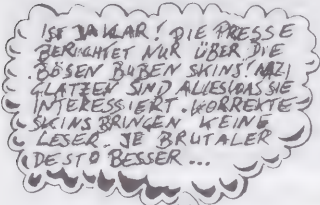 IST JA KLAR! DIE PRESSE
BERICHTET NUR ÜBER DIE
BÖSEN BUBEN SKINS! NAZI
GLATZEN SIND ALLES WAS SIE
INTERESSIERT. KORREKTE
SKINS BRINGEN KEINE
LESER. JE BRUTALER
DESTO BESSER...